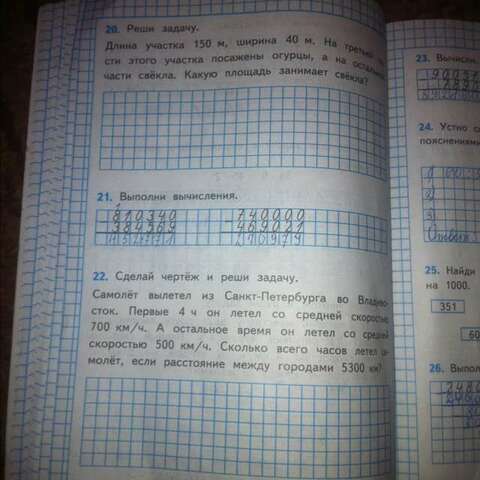 20. Реши задачу.
Длина участка 150 м, ширина 40 м. На
сти этого участка посажены огурцы, а на
части свёкла. Какую площадь занимает свёкла?
21. Выполни вычисления.
810340
740000
384369
469021
270979
22. Сделай чертёж и реши задачу.
Самолёт вылетел из Санкт-Петербурга во Владиво-
сток. Первые 4 ч он летел со средней скоростью
700 км/ч. А остальное время он летел со средней
скоростью 500 км/ч. Сколько всего часов летел са-
молёт, если расстояние между городами 5300 км?
23. Вычисли
24. Устно
пояснениями
1)
2)
3)
Ответ
25. Найди
на 1000.
351
60
26.